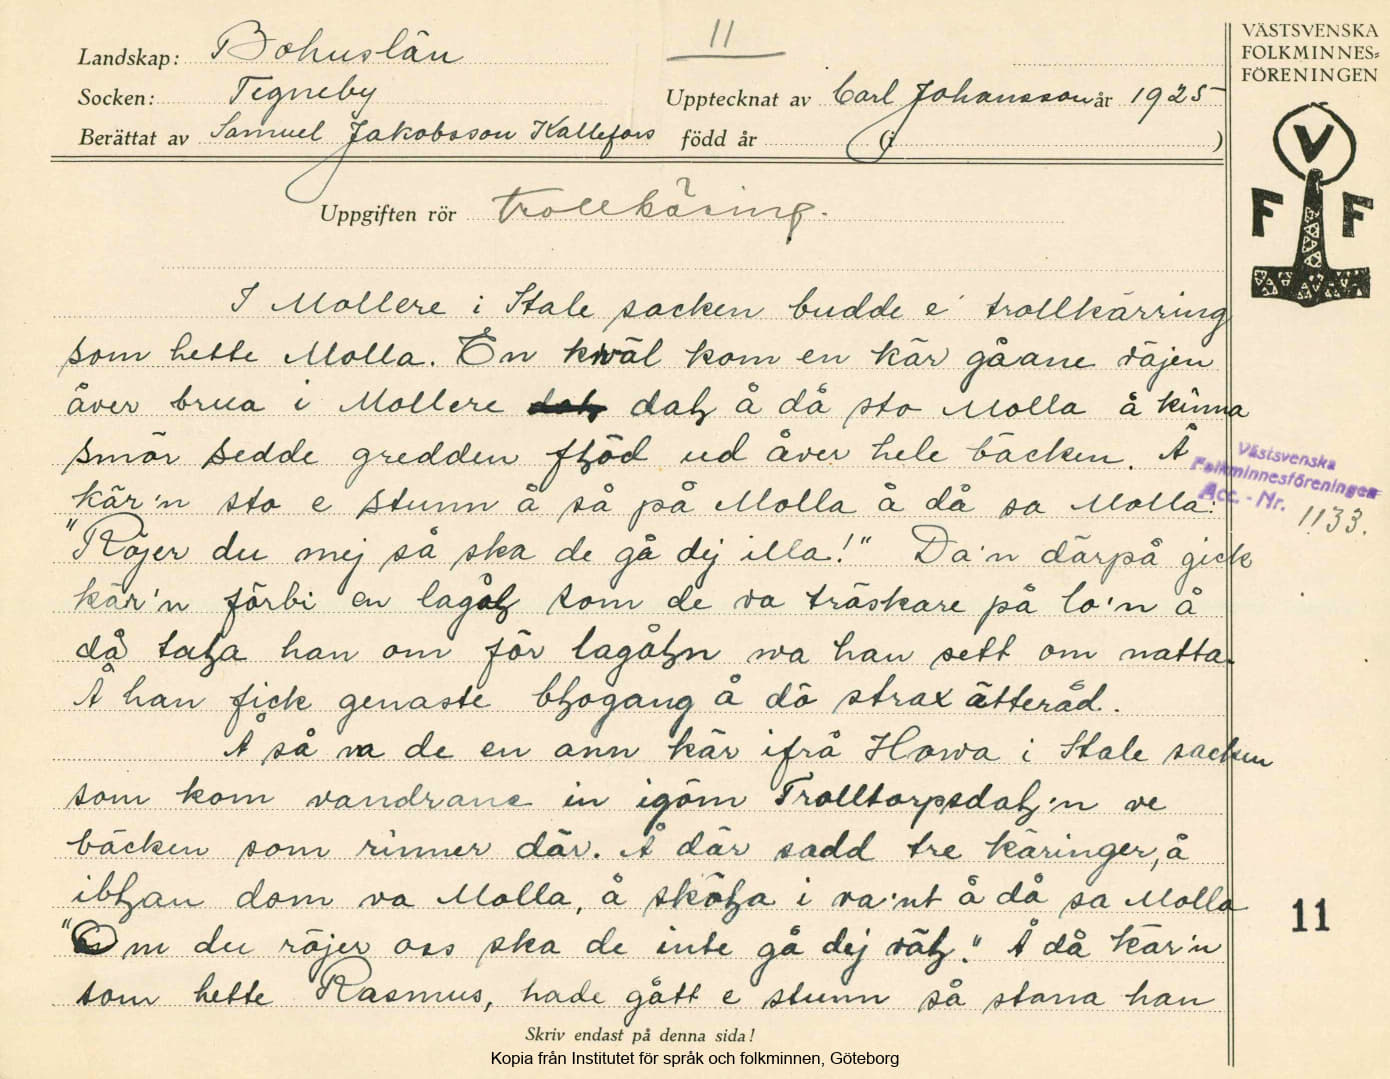 Landskap: Bohuslän
11
VÄSTSVENSKA
FOLKMINNES=
FÖRENINGEN
Socken: Tegneby
Upptecknat av Carl Johansson år 1925
Berättat av Samuel Jakobsson Kallefors
född år (i )
V
F F
Uppgiften rör trollkäring.
I Mollere i Stale sacken budde e' trollkärring
som hette Molla. En kväl kom en kär gåane väjen
åver brua i Mollere daꜧ å då sto Molla å kinna
smör sedde gredden fꜧöd ud åver hele bäcken. Å
kär'n sto e stunn å så på Molla å då sa Molla:
"Röjer du mej så ska de gå dej illa!" Da'n därpå gick
kär'n förbi en lagåꜧ som de va träskare på lo'n å
då taꜧa han om för lagåꜧn va han sett om natta.
Å han fick genaste bꜧogang å dö strax ätteråd.
Å så va de en ann kär ifrå Howa i Stale sacken
som kom vandrane in igöm Trolltorpsdaꜧ'n ve
bäcken som rinner där. Å där sadd tre käringer, å
ibꜧan dom va Molla, å sköꜧa i va'nt å då sa Molla
"Om du röjer oss ska de inte gå dej väꜧ." Å då kär'n
som hette Rasmus, hade gått e stunn så stana han
Västsvenska
Folkminnesföreningen
Acc. - Nr. 1133.
11
Skriv endast på denna sida!
Kopia från Institutet för språk och folkminnen, Göteborg